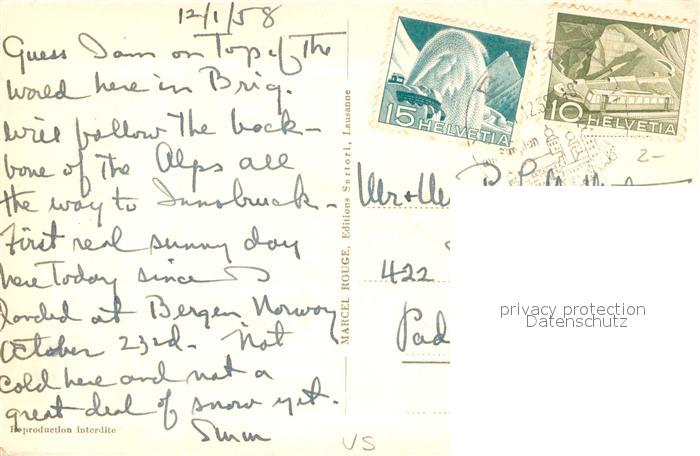 12/1/58
Guess I am on Top of The
world here in Brig.
will follow The back-
bone of The Alps all
the way to Innsbruck -
First real sunny day
here Today since I
landed at Bergen Norway
October 23rd - Not
cold here and not a
great deal of snow yet.
Reproduction interdite
MARCEL ROUGE, Editions Sartori, Lausanne
15 HELVETIA
10 HELVETIA
2-
Mr + Mr
422
Pad
privacy protection
Datenschutz
VS